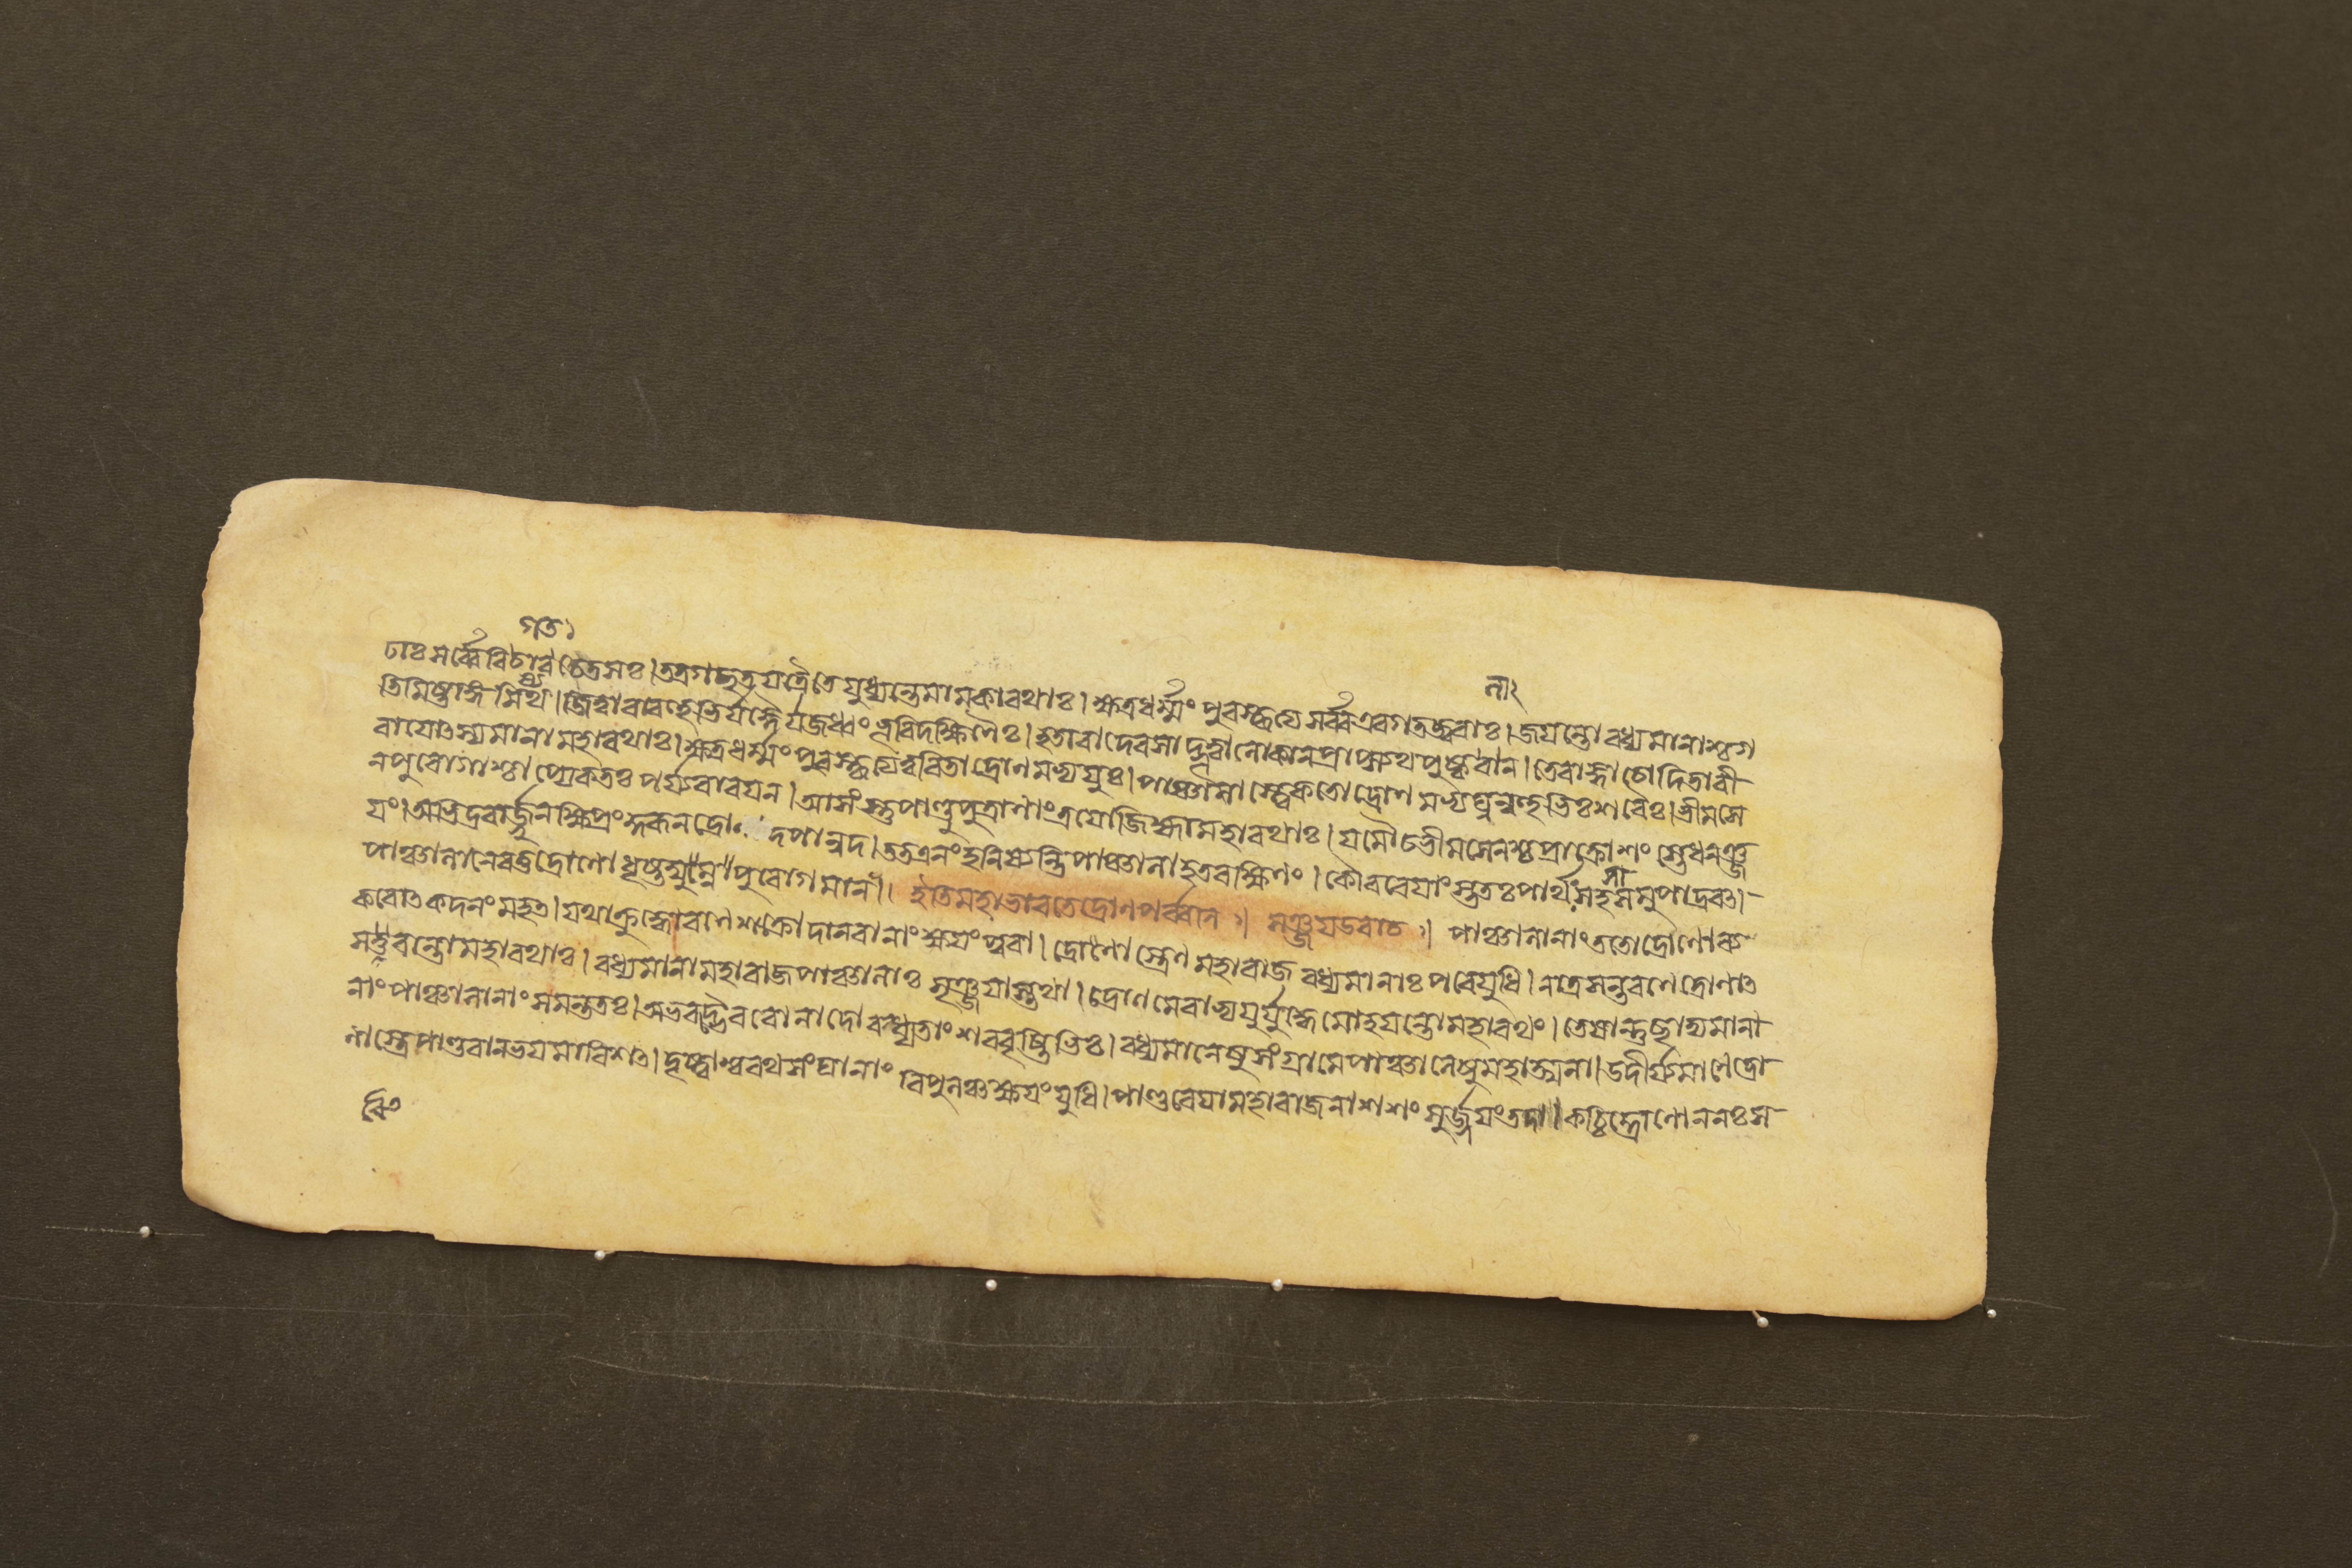 গত১
ঢাঃ সর্ব্বে বিচারচেতসঃ। তত্রগচ্ছত যত্রৈতে যুধ্যন্তে মামকা রথাঃ। ক্ষত্রধর্ম্মং পুরস্কৃত্য সর্ব্ব এব গতজ্বরাঃ। জয়ন্তো বধ্যমানাশ্চ গ
তিমিষ্টাঙ্গমিষ্যথ। জিত্বা বা বহুভির্যজ্ঞৈর্যজধ্বং ভূরিদক্ষিণৈঃ। হতা বা দেবসাদ্ভূত্বা লোকান্ প্রাপ্স্যথ পুষ্কলান। তে রাজ্ঞা চোদিতা বী
রা যোৎস্যমানা মহারথাঃ। ক্ষত্রধর্ম্মং পুরস্কৃত্য ত্বরিতা দ্রোণমভ্যযুঃ। পাঞ্চালাস্ত্বেকতো দ্রোণমভ্যঘ্নন্বহুভিঃ শরৈঃ। ভীমসে
নপুরোগাশ্চাপ্যেকতঃ পর্য্যবারয়ন। আসংস্তু পাণ্ডুপুত্রাণাং ত্রয়োজিহ্মা মহারথাঃ। যমৌ চ ভীমসেনশ্চ প্রাক্রোশংস্তে ধনঞ্জ
য়ং। অভিদ্রবার্জ্জুন ক্ষিপ্রং কুরূন দ্রোণাদপানুদ। তত এনং হনিষ্যন্তি পাঞ্চালা হতরক্ষিণং। কৌরবেয়াংস্ততঃ পার্থঃ সহসা সমুপাদ্রবৎ।
পাঞ্চালানেব তু দ্রোণো ধৃষ্টদ্যুম্নপুরোগমান্। ইতি মহাভারতে দ্রোণপর্ব্বনি ১। সঞ্জয় উবাচ ১। পাঞ্চালানাং ততো দ্রোণোক
করোৎ কদনং মহত। যথা ক্রুদ্ধো রণে শক্রো দানবানাং ক্ষয়ং পুরা। দ্রোণাস্ত্রেণ মহারাজ বধ্যমানাঃ পরে যুধি। নাত্রসন্ত রণে দ্রোণাৎ
সত্ত্ববন্তো মহারথাঃ। বধ্যমানা মহারাজ পাঞ্চালাঃ সৃঞ্জয়াস্তথা। দ্রোণমেবাভ্যযুর্যুদ্ধে মোহয়ন্তো মহারথং। তেষান্তু ছাদ্যমানা
নাং পাঞ্চালানাং সমন্ততঃ। অভবদ্ভৈরবো নাদো বধ্যতাং শরবৃষ্টিভিঃ। বধ্যমানেষু সংগ্রামে পাঞ্চালেষু মহাত্মনা। উদীর্য্যমাণে দ্রো
ণাস্ত্রে পাণ্ডবান ভয়মাবিশৎ। দৃষ্ট্বাশ্বরথসংঘানাং বিপুলঞ্চ ক্ষয়ং যুধি। পাণ্ডবেয়া মহারাজ নাশশংসুর্জ্জয়ং তদা। কচ্চিদ্দ্রোণো ন নঃ স